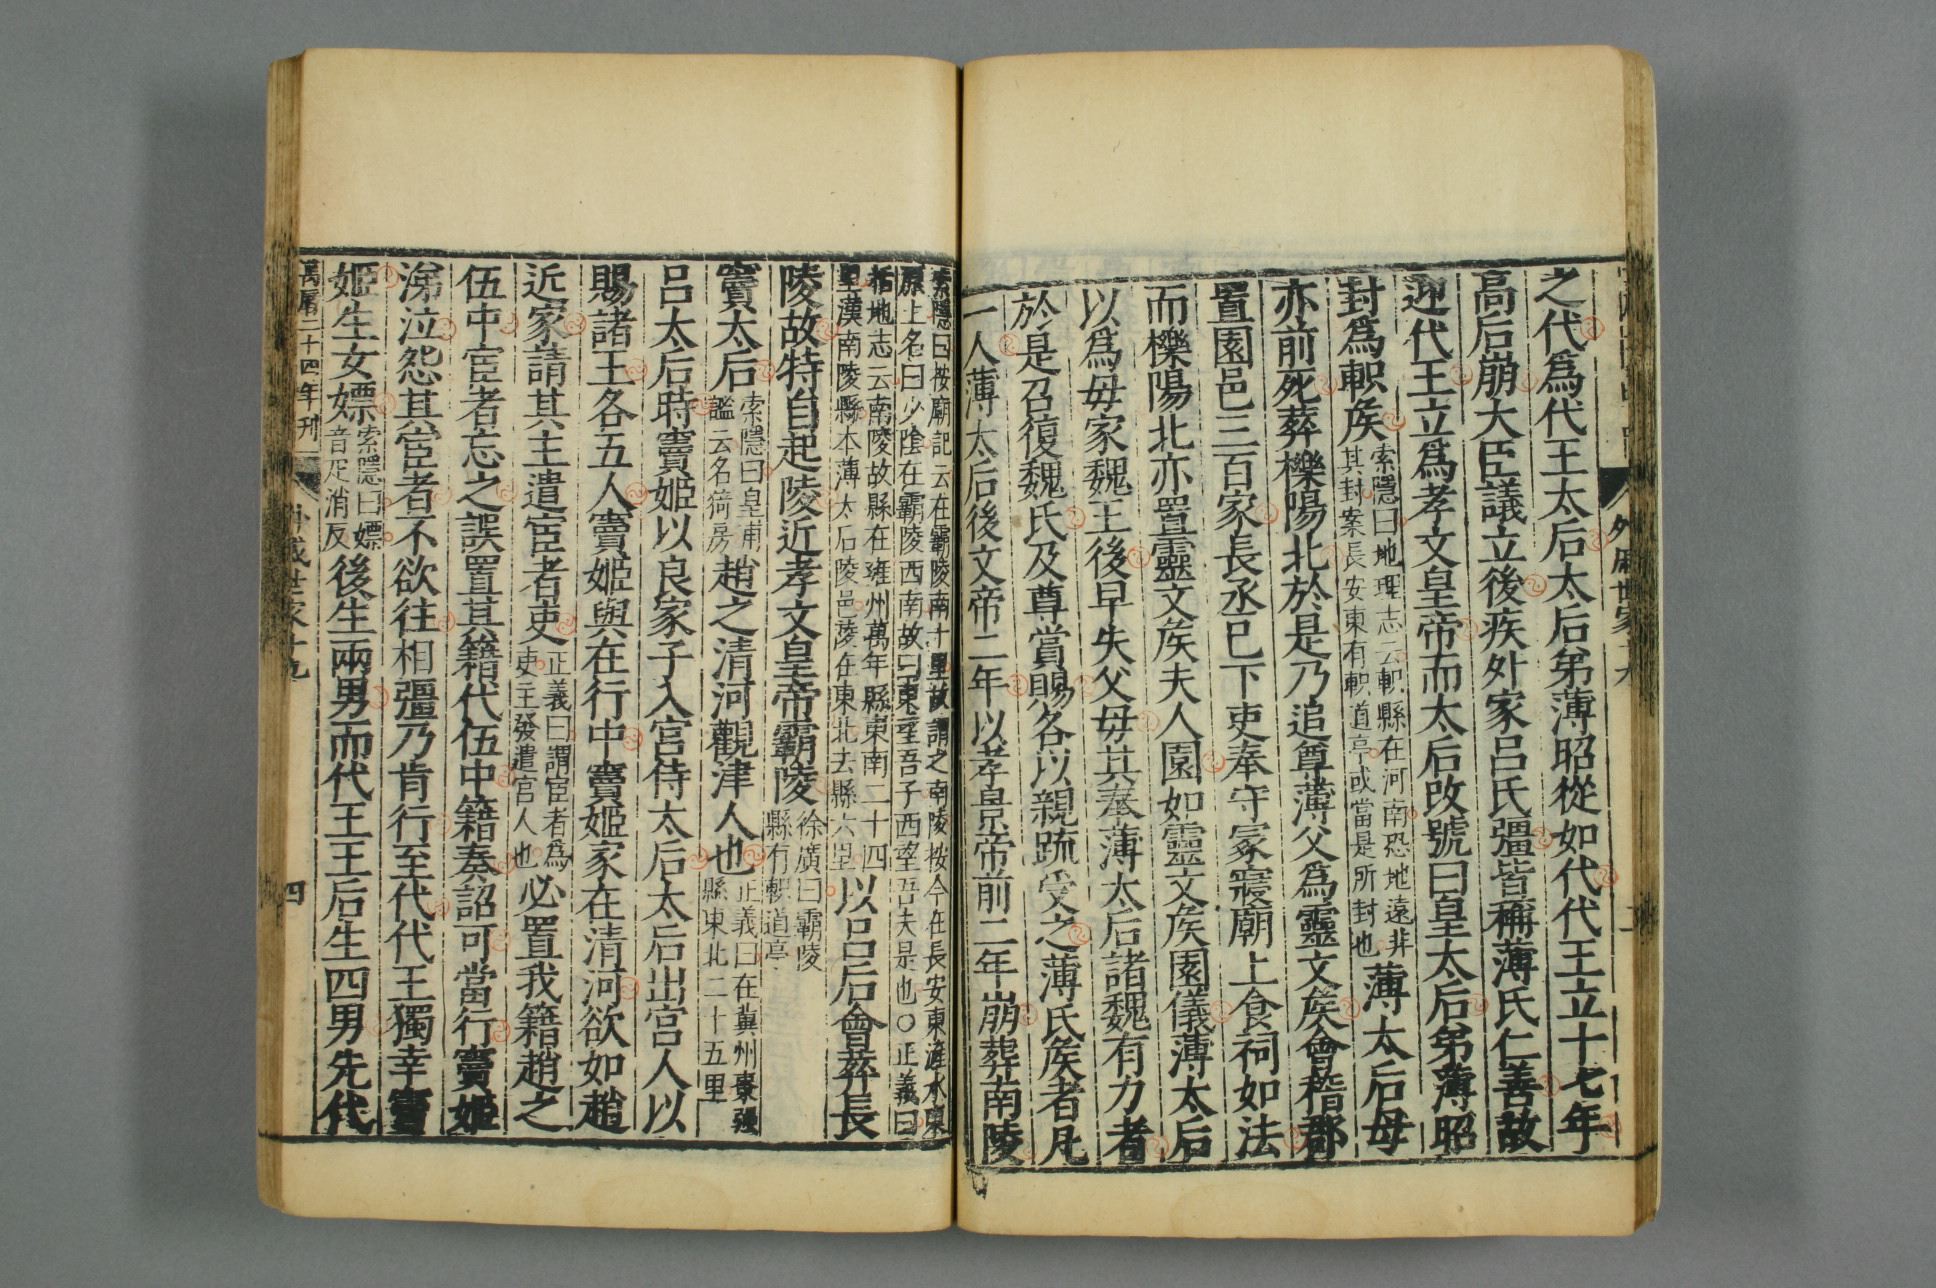 外戚世家十九
之代爲代王太后太后弟薄昭從如代代王立十七年
高后崩大臣議立後疾外家呂氏彊皆稱薄氏仁善故
迎代王立爲孝文皇帝而太后改號曰皇太后弟薄昭
封爲軹矦
索隱曰地理志云軹縣在河南恐地遠非
其封案長安東有軹道亭或當是所封也
薄太后母
亦前死葬櫟陽北於是乃追尊薄父爲靈文矦會稽郡
置園邑三百家長丞已下吏奉守冢寢廟上食祠如法
而櫟陽北亦置靈文矦夫人園如靈文矦園儀薄太后
以爲母家魏王後早失父母其奉薄太后諸魏有力者
於是召復魏氏及尊賞賜各以親疏受之薄氏矦者凡
一人薄太后後文帝二年以孝景帝前二年崩葬南陵
索隱曰按廟記云在霸陵南十里故謂之南陵按今在長安東滻水東
原上名曰少陰在霸陵西南故曰東望吾子西望吾夫是也○正義曰
括地志云南陵故縣在雍州萬年縣東南二十四
里漢南陵縣本薄太后陵邑陵在東北去縣六里
以呂后會葬長
陵故特自起陵近孝文皇帝霸陵
徐廣曰霸陵
縣有軹道亭
竇太后
索隱曰皇甫
謐云名猗房
趙之清河觀津人也
正義曰在冀州棗強
縣東北二十五里
呂太后時竇姬以良家子入宮侍太后太后出宮人以
賜諸王各五人竇姬與在行中竇姬家在清河欲如趙
近家請其主遣宦者吏
正義曰謂宦者爲
吏主發遣宮人也
必置我籍趙之
伍中宦者忘之誤置其籍代伍中籍奏詔可當行竇姬
涕泣怨其宦者不欲往相彊乃肯行至代代王獨幸竇
姬生女嫖
索隱曰嫖
音疋消反
後生兩男而代王王后生四男先代
萬曆二十四年刊
外戚世家十九
四